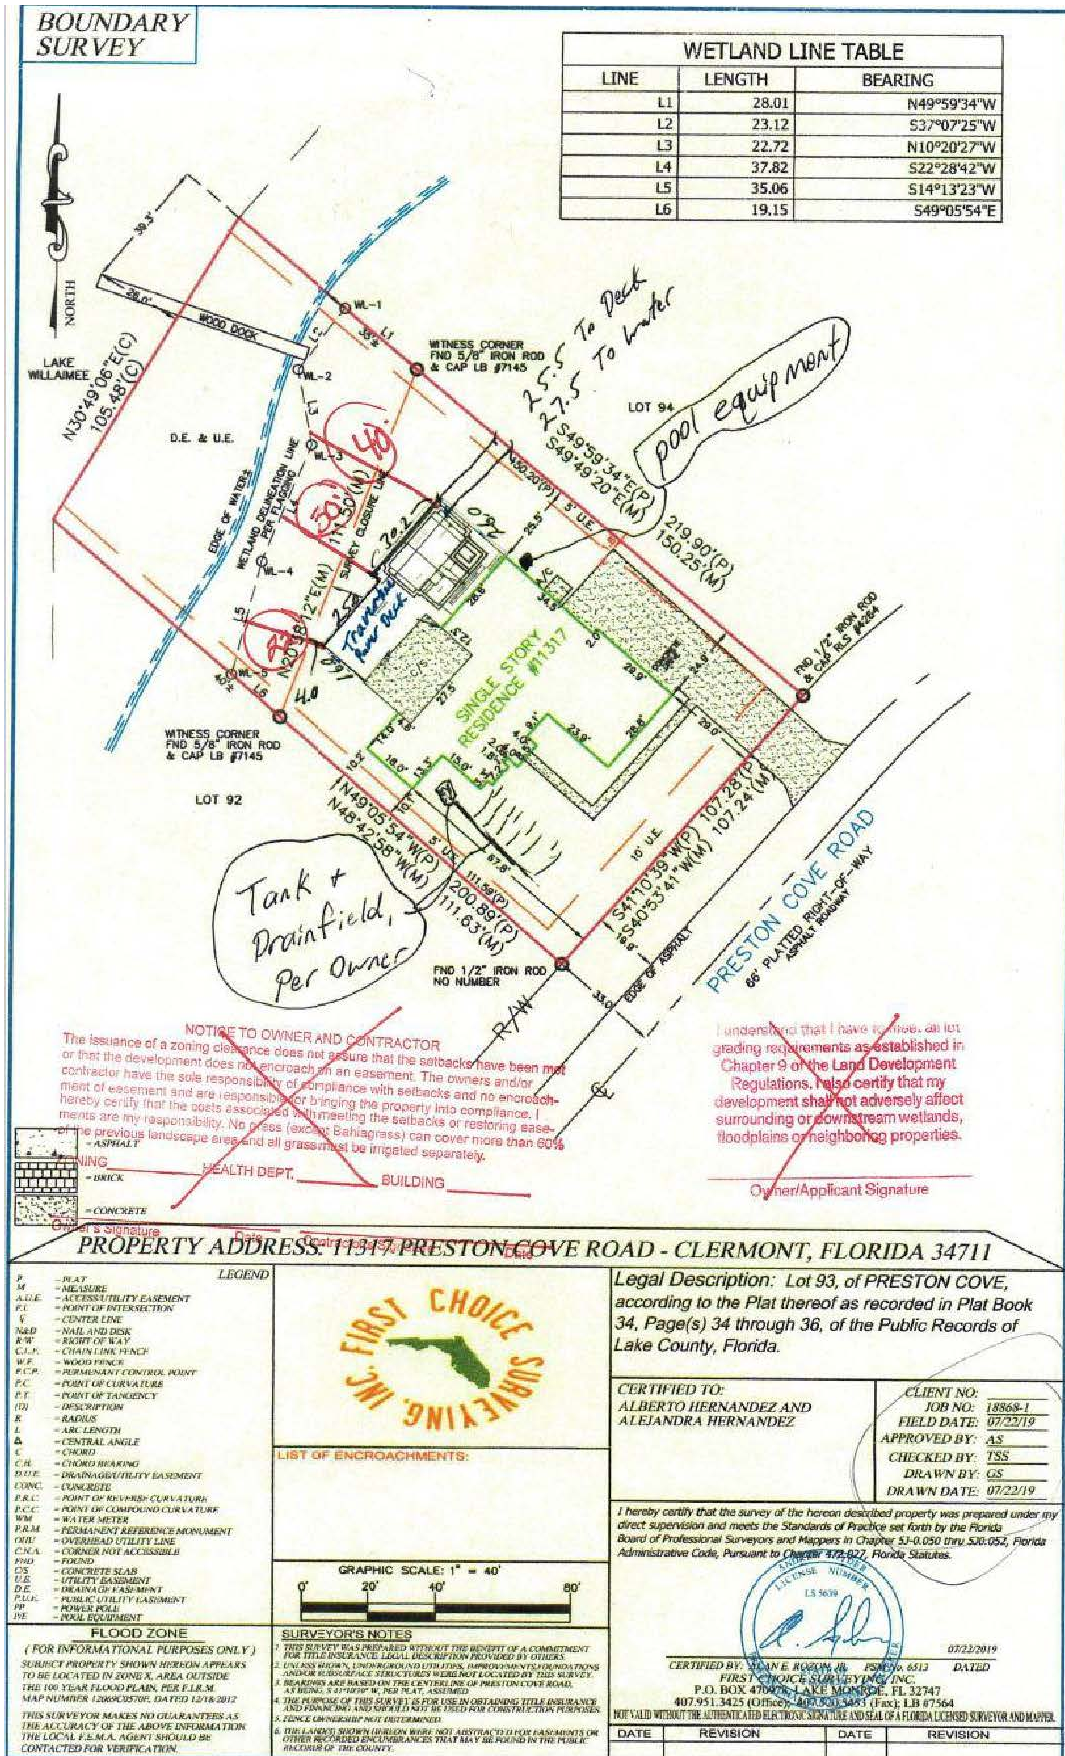 BOUNDARY
SURVEY
WETLAND LINE TABLE
LINE LENGTH BEARING
L1 28.01 N49°59'34"W
L2 23.12 S37°07'25"W
L3 22.72 N10°20'27"W
L4 37.82 S22°28'42"W
L5 35.06 S14°13'23"W
L6 19.15 S49°05'54"E
NORTH
39.3'
26.0'
WOOD DOCK
LAKE
WILLAIMEE
N30°49'06"E(C)
105.48'(C)
D.E. & U.E.
EDGE OF WATER±
WETLAND DELINEATION LINE
PER FLAGGING
WL-1
L1
L2
WL-2
L3
WL-3
L4
WL-4
L5
WL-5
L6
WITNESS CORNER
FND 5/8" IRON ROD
& CAP LB #7145
25.5 To Deck
27.5 To water
LOT 94
pool equipment
40.
50'
111.50'(M)
SURVEY CLOSURE LINE
N20°58'12"E(M)
30.2
26.0
25.0
Travertine
Paver Deck
4.0
S49°59'34"E(P)
S49°49'20"E(M)
450.20'(P)
5' U.E.
219.90'(P)
150.25'(M)
FND 1/2" IRON ROD
& CAP RLS #4264
SINGLE STORY
RESIDENCE #11317
WITNESS CORNER
FND 5/8" IRON ROD
& CAP LB #7145
LOT 92
N49°05'54"W(P)
N48°42'58"W(M)
5' U.E.
67.8'
111.59'(P)
200.89'(P)
111.63'(M)
10' U.E.
S41°10'39"W(P) 107.28'(P)
S40°53'41"W(M) 107.24'(M)
Tank +
Drainfield,
Per Owner
FND 1/2" IRON ROD
NO NUMBER
R/W
33.0'
19.9'
EDGE OF ASPHALT
PRESTON COVE ROAD
66' PLATTED RIGHT-OF-WAY
ASPHALT ROADWAY
NOTICE TO OWNER AND CONTRACTOR
The issuance of a zoning clearance does not assure that the setbacks have been met
or that the development does not encroach on an easement. The owners and/or
contractor have the sole responsibility of compliance with setbacks and no encroach-
ment of easement and are responsible for bringing the property into compliance. I
hereby certify that the costs associated with meeting the setbacks or restoring ease-
ments are my responsibility. No grass (except Bahiagrass) can cover more than 60%
of the previous landscape area and all grass must be irrigated separately.
ZONING HEALTH DEPT. BUILDING
Owner's Signature Date Contractor's Signature Date
I understand that I have to meet all lot
grading requirements as established in
Chapter 9 of the Land Development
Regulations. I also certify that my
development shall not adversely affect
surrounding or downstream wetlands,
floodplains or neighboring properties.
Owner/Applicant Signature
= ASPHALT
= BRICK
= CONCRETE
PROPERTY ADDRESS: 11317 PRESTON COVE ROAD - CLERMONT, FLORIDA 34711
LEGEND
P = PLAT
M = MEASURE
A.U.E. = ACCESS/UTILITY EASEMENT
P.I. = POINT OF INTERSECTION
= CENTER LINE
N&D = NAIL AND DISK
R/W = RIGHT OF WAY
C.L.F. = CHAIN LINK FENCE
W.F. = WOOD FENCE
P.C.P. = PERMANENT CONTROL POINT
P.C. = POINT OF CURVATURE
P.T. = POINT OF TANGENCY
(D) = DESCRIPTION
R = RADIUS
L = ARC LENGTH
Δ = CENTRAL ANGLE
C = CHORD
C.B. = CHORD BEARING
D.U.E. = DRAINAGE/UTILITY EASEMENT
CONC. = CONCRETE
P.R.C. = POINT OF REVERSE CURVATURE
P.C.C. = POINT OF COMPOUND CURVATURE
WM = WATER METER
P.R.M = PERMANENT REFERENCE MONUMENT
OHU = OVERHEAD UTILITY LINE
C.N.A. = CORNER NOT ACCESSIBLE
FND = FOUND
C/S = CONCRETE SLAB
U.E. = UTILITY EASEMENT
D.E. = DRAINAGE EASEMENT
P.U.E. = PUBLIC UTILITY EASEMENT
PP = POWER POLE
P/E = POOL EQUIPMENT
FIRST CHOICE SURVEYING, INC.
LIST OF ENCROACHMENTS:
GRAPHIC SCALE: 1" = 40'
0' 20' 40' 80'
Legal Description: Lot 93, of PRESTON COVE,
according to the Plat thereof as recorded in Plat Book
34, Page(s) 34 through 36, of the Public Records of
Lake County, Florida.
CERTIFIED TO:
ALBERTO HERNANDEZ AND
ALEJANDRA HERNANDEZ
CLIENT NO:
JOB NO: 18868-1
FIELD DATE: 07/22/19
APPROVED BY: AS
CHECKED BY: TSS
DRAWN BY: GS
DRAWN DATE: 07/22/19
I hereby certify that the survey of the hereon described property was prepared under my
direct supervision and meets the Standards of Practice set forth by the Florida
Board of Professional Surveyors and Mappers in Chapter 5J-0.050 thru 5J0.052, Florida
Administrative Code, Pursuant to Chapter 472.027, Florida Statutes.
LICENSE NUMBER
LS 5639
07/22/2019
DATED
FIRST CHOICE SURVEYING, INC.
P.O. BOX 470978, LAKE MONROE, FL 32747
407.951.3425 (Office) (Fax); LB #7564
NOT VALID WITHOUT THE AUTHENTICATED ELECTRONIC SIGNATURE AND SEAL OF A FLORIDA LICENSED SURVEYOR AND MAPPER.
DATE REVISION DATE REVISION
FLOOD ZONE
( FOR INFORMATIONAL PURPOSES ONLY )
SUBJECT PROPERTY SHOWN HEREON APPEARS
TO BE LOCATED IN ZONE X, AREA OUTSIDE
THE 100 YEAR FLOOD PLAIN, PER F.I.R.M.
MAP NUMBER 12069C0570E, DATED 12/18/2012
THIS SURVEYOR MAKES NO GUARANTEES AS
THE ACCURACY OF THE ABOVE INFORMATION
THE LOCAL F.E.M.A. AGENT SHOULD BE
CONTACTED FOR VERIFICATION.
SURVEYOR'S NOTES
1. THIS SURVEY WAS PREPARED WITHOUT THE BENEFIT OF A COMMITMENT
FOR TITLE INSURANCE. LEGAL DESCRIPTION PROVIDED BY OTHERS.
2. UNLESS SHOWN, UNDERGROUND UTILITIES, IMPROVEMENTS, FOUNDATIONS
AND/OR SUBSURFACE STRUCTURES WERE NOT LOCATED BY THIS SURVEY.
3. BEARINGS ARE BASED ON THE CENTERLINE OF PRESTON COVE ROAD,
AS BEING, S 41°10'39" W, PER PLAT, ASSUMED
4. THE PURPOSE OF THIS SURVEY IS FOR USE IN OBTAINING TITLE INSURANCE
AND FINANCING AND SHOULD NOT BE USED FOR CONSTRUCTION PURPOSES.
5. FENCE OWNERSHIP NOT DETERMINED.
6. THE LANDS SHOWN HEREON WERE NOT ABSTRACTED FOR EASEMENTS OR
OTHER RECORDED ENCUMBRANCES THAT MAY BE FOUND IN THE PUBLIC
RECORDS OF THE COUNTY.